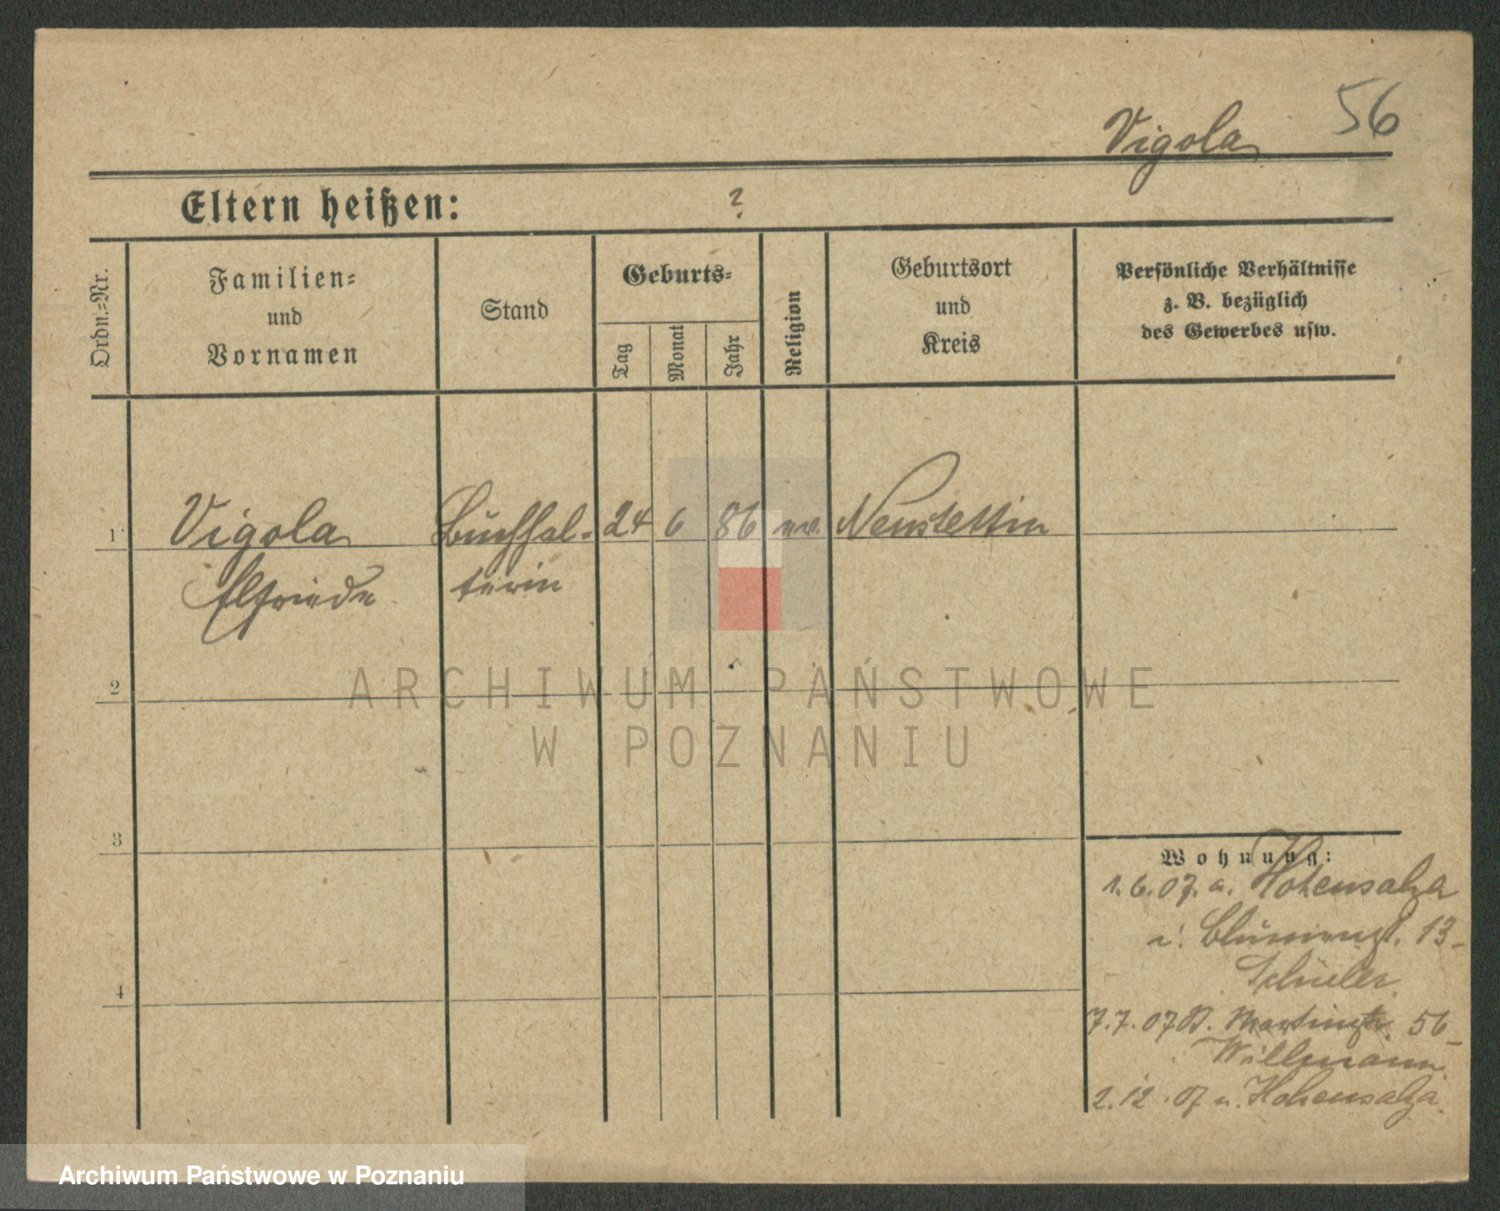 56
Vigola
Eltern heißen: ?
Ordn.-Nr.
Familien-
und
Vornamen
Stand
Geburts-
Tag
Monat
Jahr
Religion
Geburtsort
und
Kreis
Persönliche Verhältnisse
z. B. bezüglich
des Gewerbes usw.
1 Vigola Buchhal- 24 6 86 ev. Neustettin
Elfriede terin
2
ARCHIWUM PAŃSTWOWE
W POZNANIU
3
Wohnung:
1.6.07. a. Hohensalza
Blumenstr. 13
Schueler
4
7.7.07 St. Martinstr. 56
Willmann
2.12.07 n. Hohensalza
Archiwum Państwowe w Poznaniu